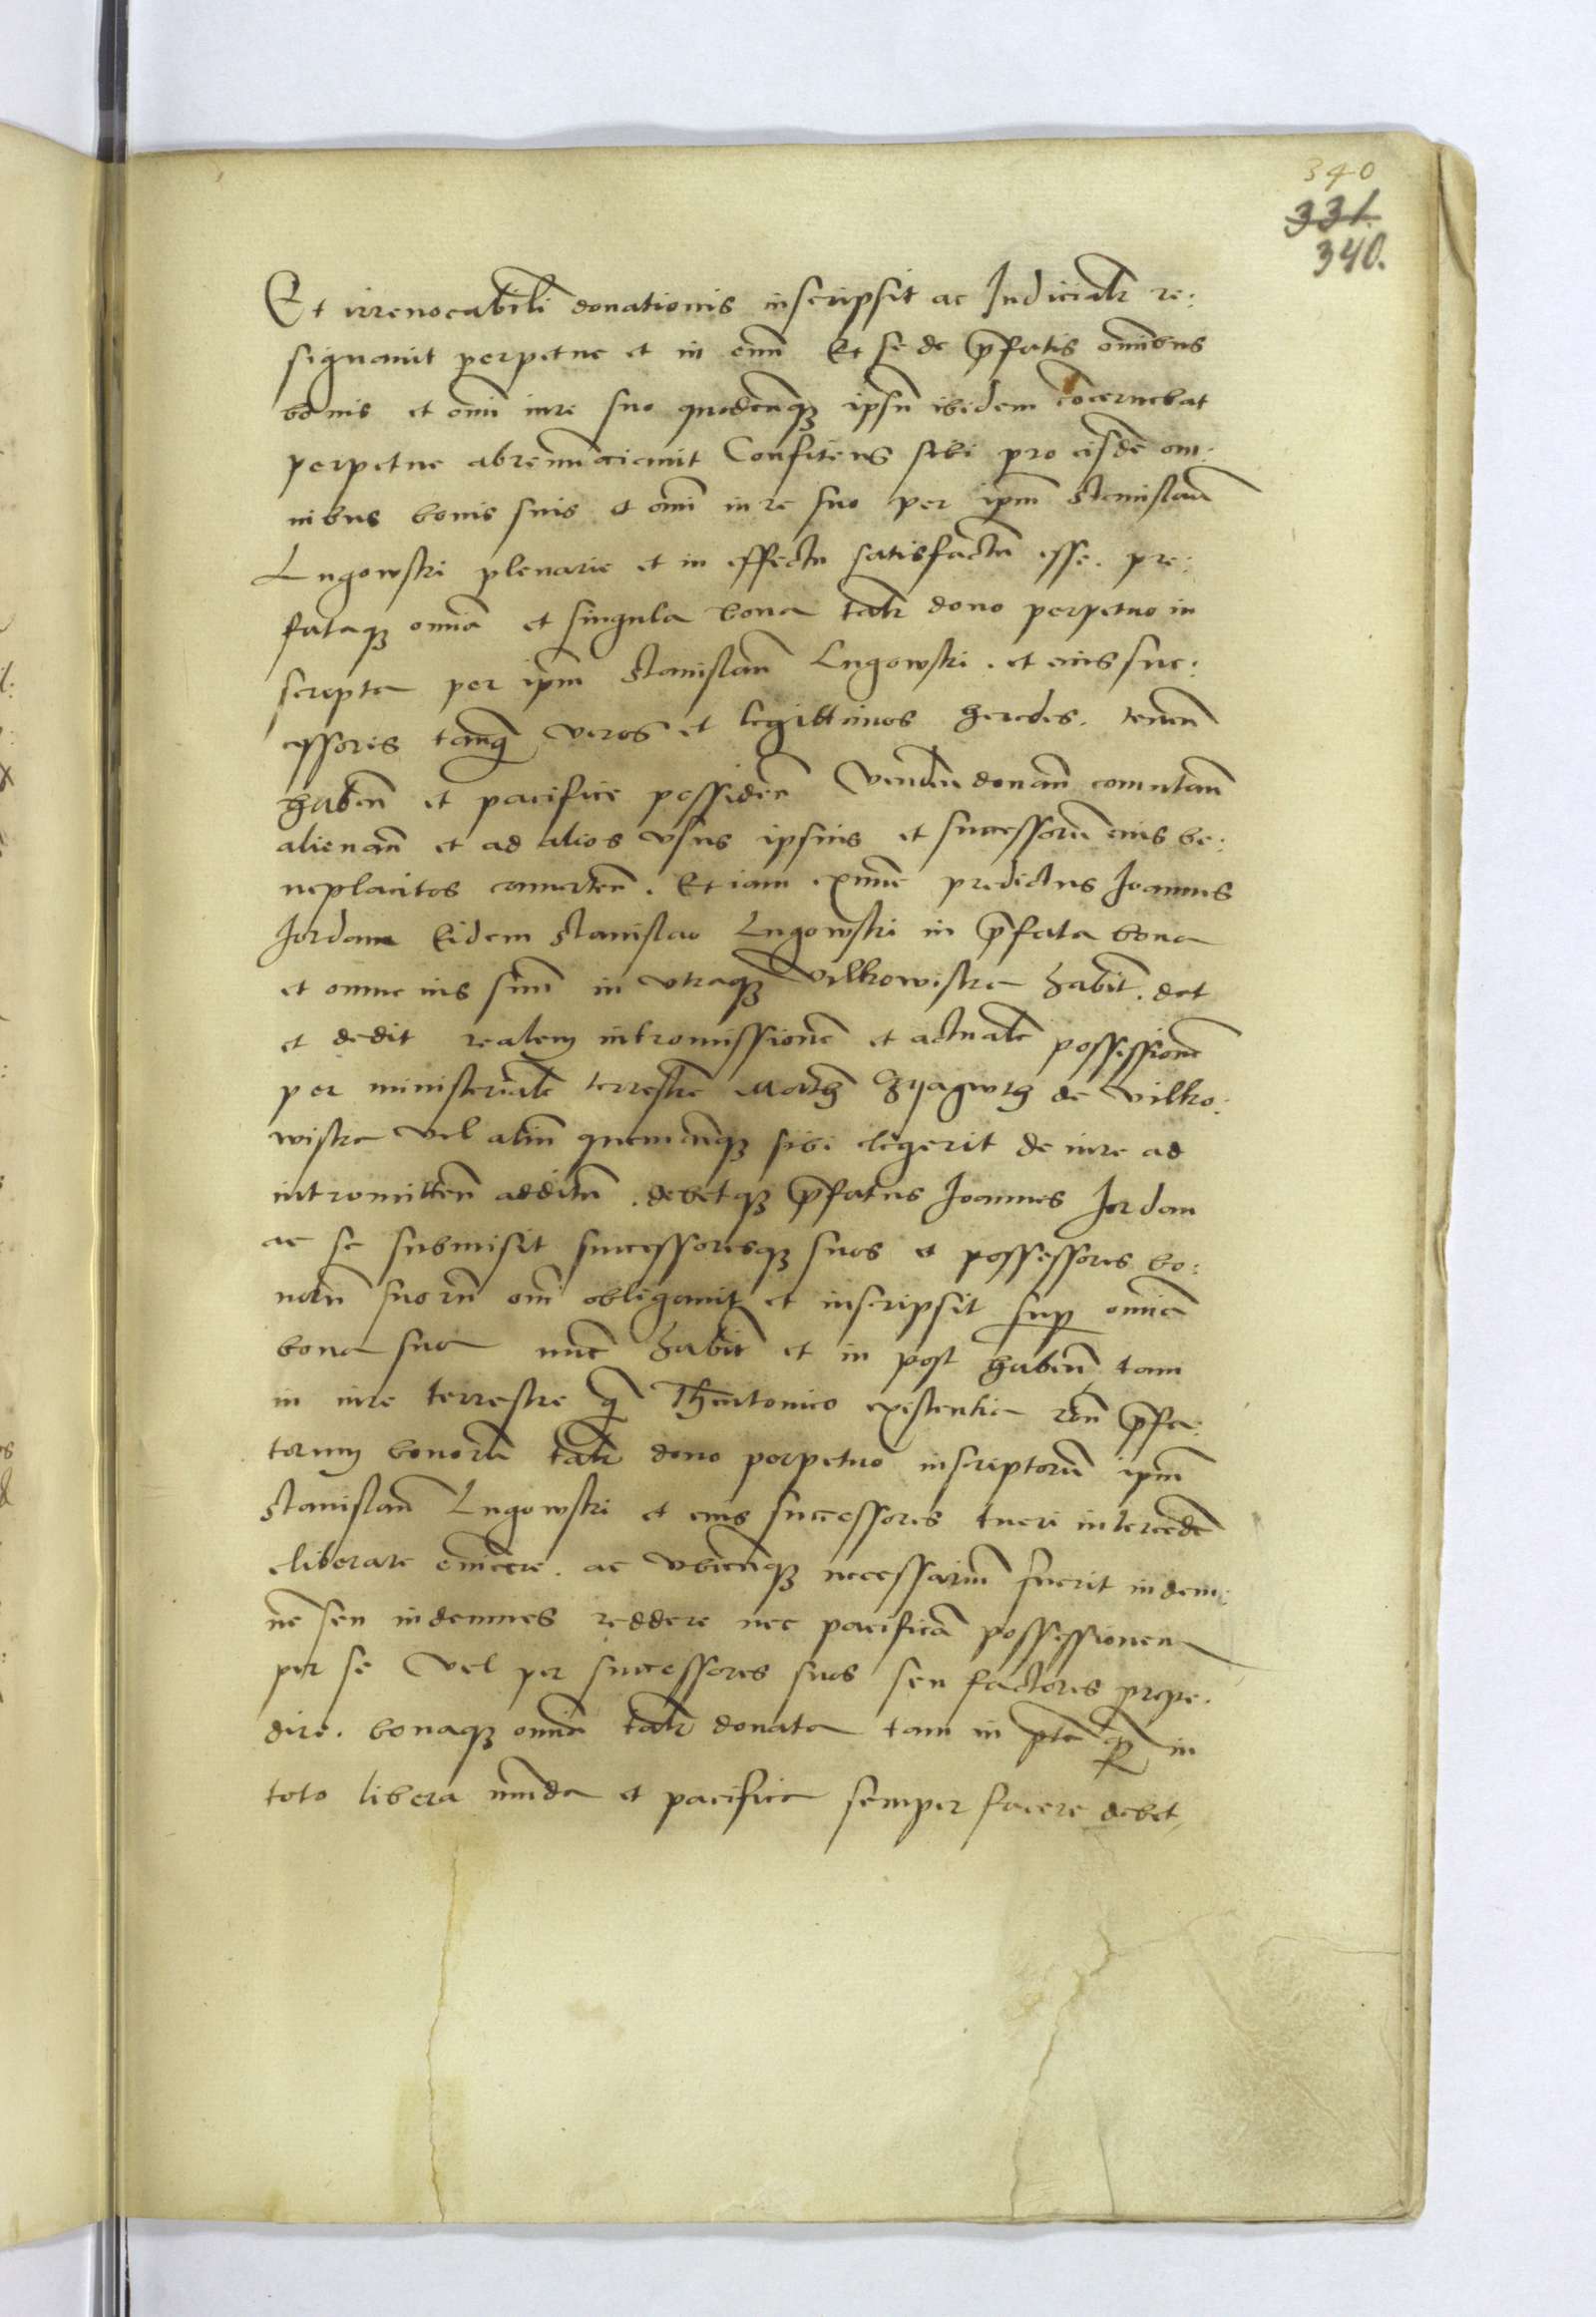 340
331.
340.
Et irrevocabili donationis inscripsit ac Judicialr re:
signavit perpetue et in evum Et se de p̄fatis omibus
bonis et omi iure suo quodcunq3 ipsū ibidem cōcernebat
perpetue abrenūciavit Confitens sibi pro eisdē om:
nibus bonis suis et omi iure suo per ipm̄ Stanislaū
Lugowski plenarie et in effectu satisfactū esse. pre:
fataq3 omnia et singula bona talr dono perpetuo in
scripta per ipm̄ Stanislaū Lugowski. et eius suc:
cessores tanq̄ veros et legittimos heredes. tenen̄
haben̄ et pacifice possiden̄ Venden̄ donan̄ comutan̄
alienan̄ et ad alios usus ipsius et successorū eius be:
neplacitos converten̄. Et iam exnūc predictus Joannes
Jordan Eidem Stanislao Lugowski in p̄fata bona
et omne ius suum in utraq3 Vilkowiska habit̄. dat
et dedit realem intromissionē et actualē possessionē
per ministerialē terrestrē Math de Vilko:
wiska vel aliū quemcunq3 sibi elegerit de iure ad
intromitten̄ additū. debetq3 p̄fatus Joannes Jordan
ac se submisit successoresq3 suos et possessores bo:
norū suorū om̄ obligavit et inscripsit sup omnia
bona sua nūc habit̄ et in post haben̄ tam
in iure terrestre q̄ Theutonico existentia rōn̄ p̄fa:
torum bonorū talr dono perpetuo inscriptorū ipm̄
Stanislaū Lugowski et eius successores tueri intercedē
eliberare evincere. ac ubicunq3 necessariū fuerit indem:
nē seu indemnes reddere nec pacificā possessionem
per se vel per successores suos seu factores prepe.
dire. bonaq3 omnia talr donata tam in pte q̄ in
toto libera munda et pacifica semper facere debet